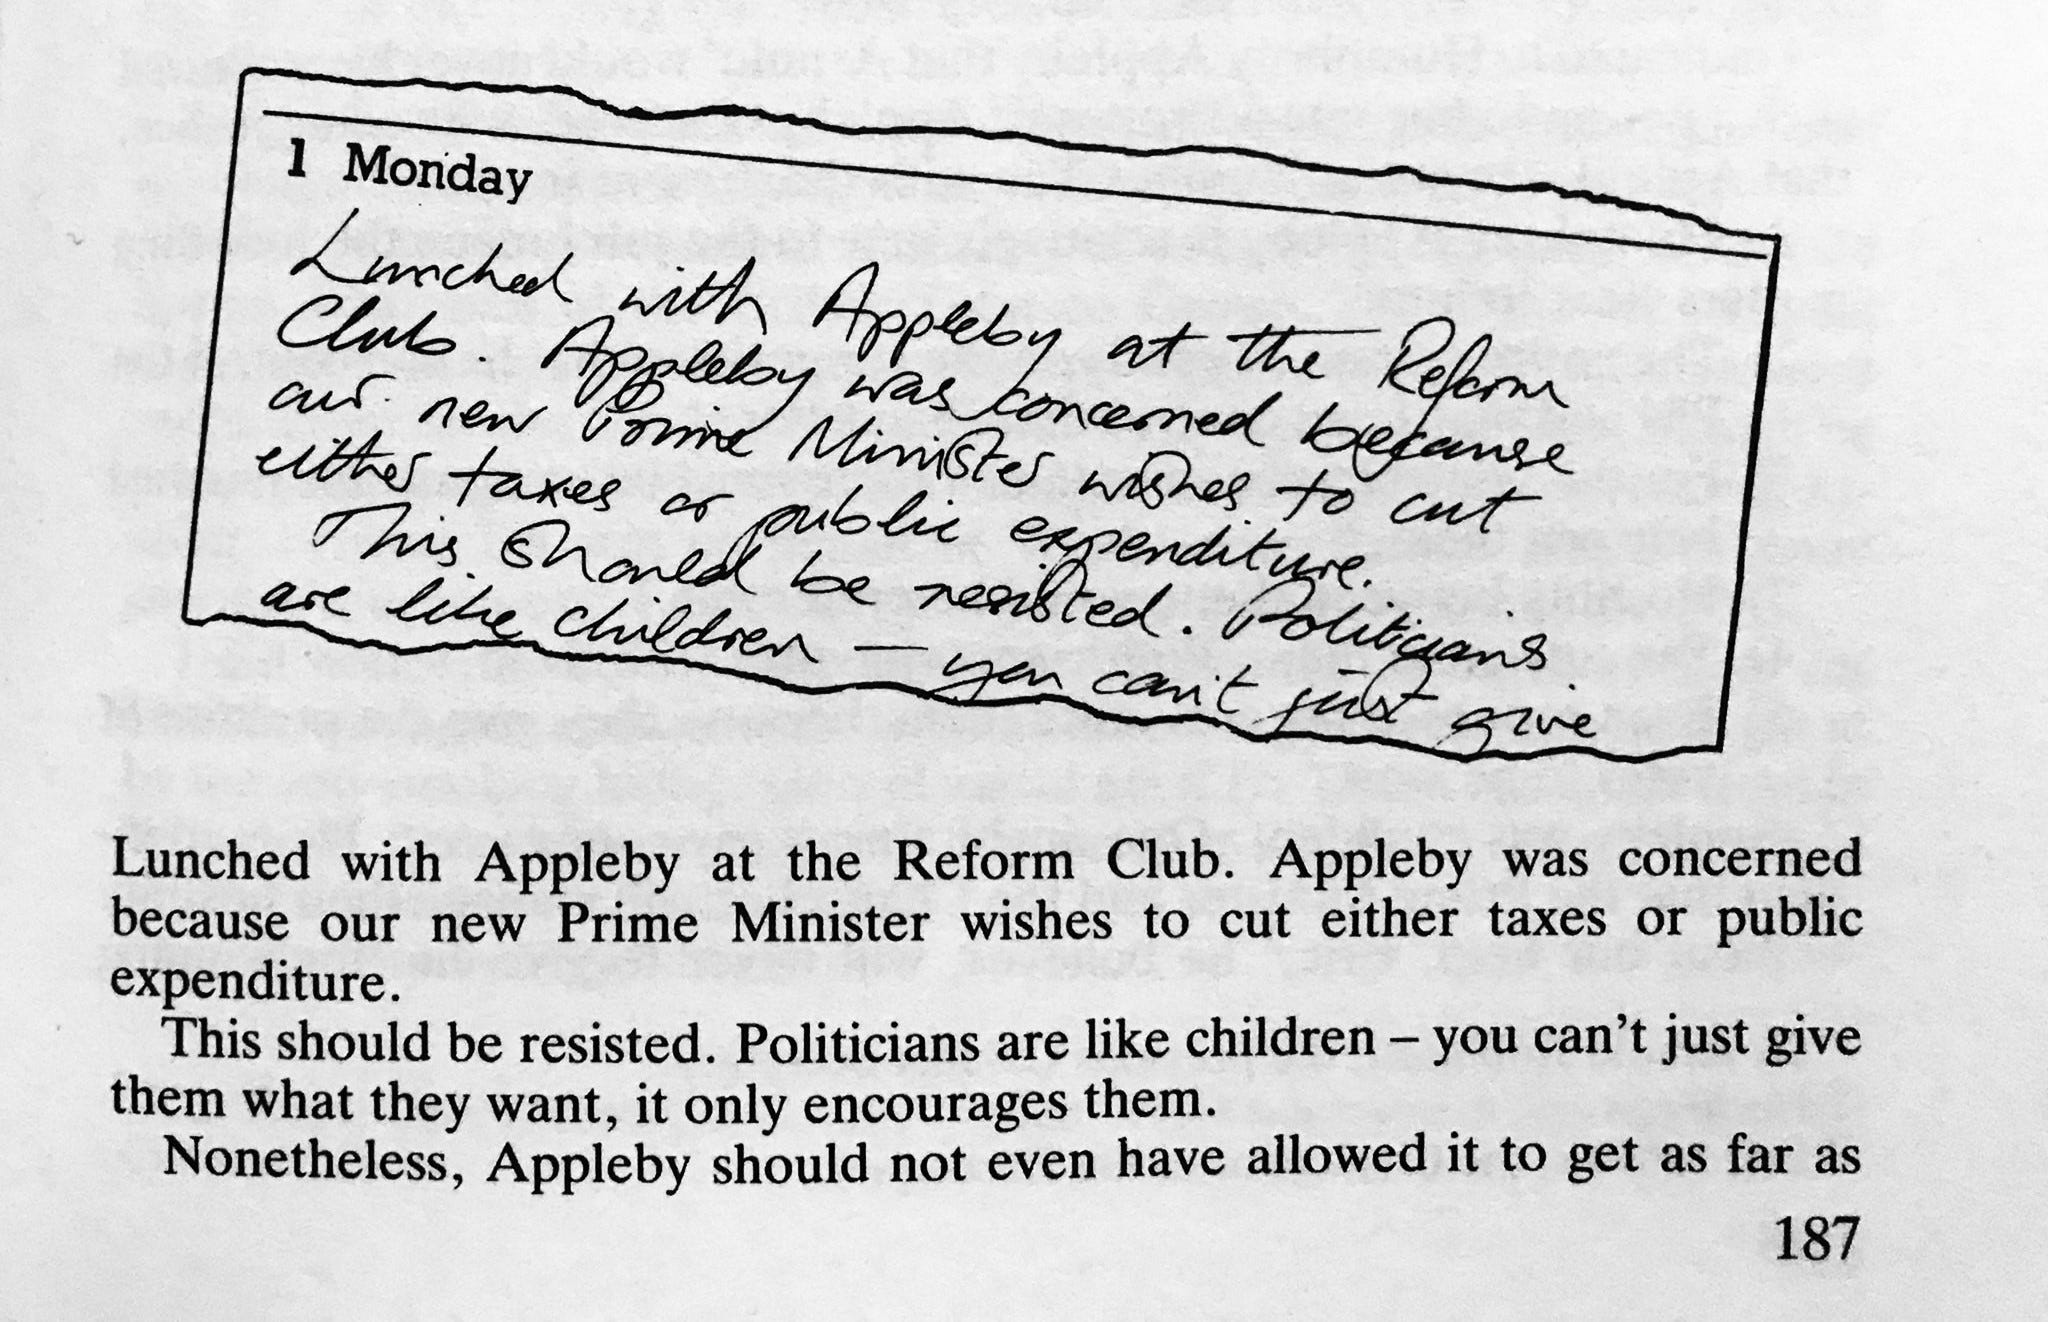 1 Monday
Lunched with Appleby at the Reform
Club. Appleby was concerned because
our new Prime Minister wishes to cut
either taxes or public expenditure.
This should be resisted. Politicians
are like children – you can't just give
Lunched with Appleby at the Reform Club. Appleby was concerned
because our new Prime Minister wishes to cut either taxes or public
expenditure.
This should be resisted. Politicians are like children – you can't just give
them what they want, it only encourages them.
Nonetheless, Appleby should not even have allowed it to get as far as
187